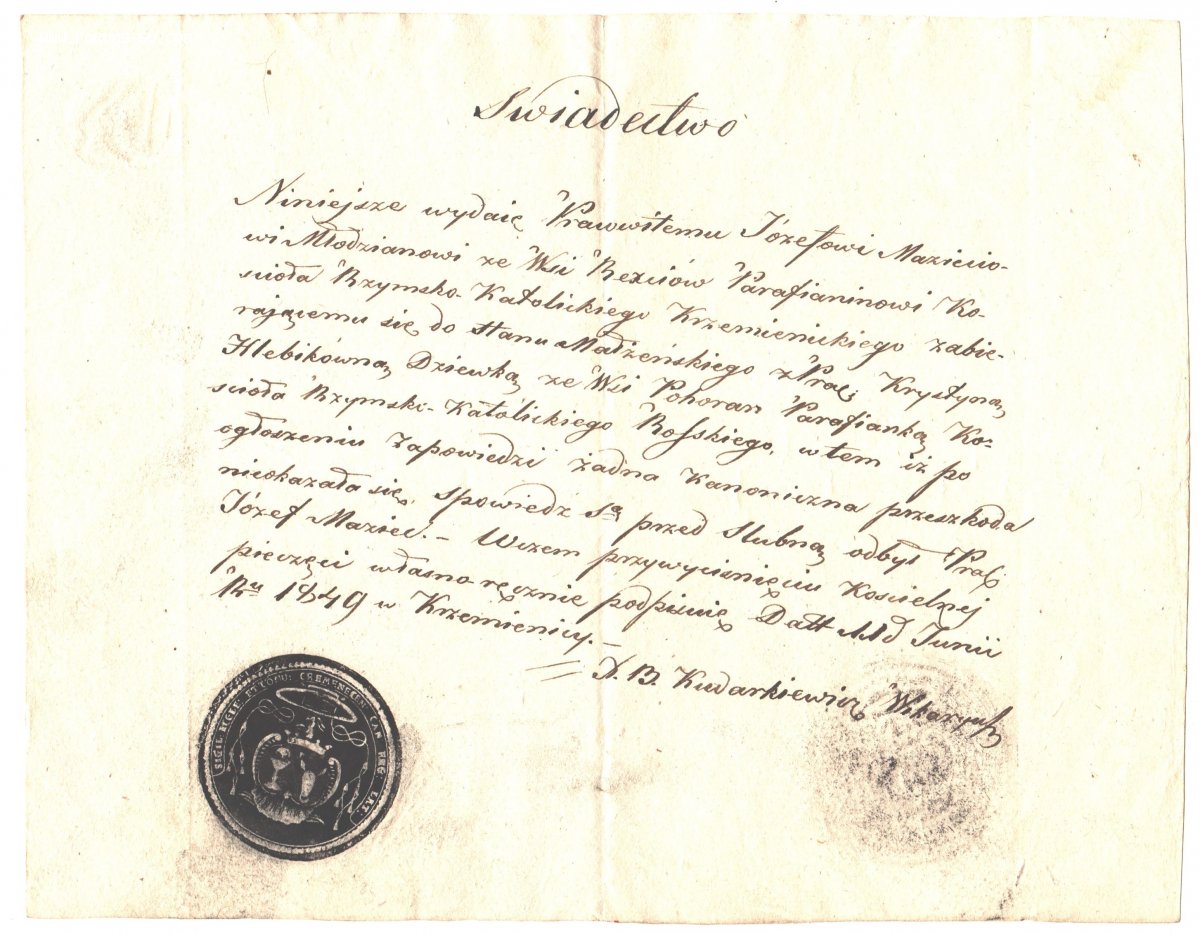 Swiadectwo
Niniejsze wydaię Prawwitemu Józefowi Mazieio-
wi Młodzianowi ze Wsi Rexciów Parafianinowi Ko-
scioła Rzymsko-Katolickiego Krzemienickiego zabie-
rającemu się do stanu Małżeńskiego z Prac: Krystyną
Hlebikówną Dziewką ze Wsi Pohoran Parafianką Ko-
scioła Rzymski-Katolickiego Rosskiego, w tem iż po
ogłoszeniu Zapowiedzi żadna Kanoniczna przeszkoda
nieokazała się, spowiedź Są przed Slubną odbył Prac:
Józef Mazieć.- Wczem przywyciśnięciu Koscielnej
pieczęci własno-ręcznie podpisuię Datt Junii
Ru 1849 w Krzemienicy.-
X. B. Kudarkiewicz Wikaryusz
SIGIL. ECCLE. ET COMU: CREMENECENE CAN. REG. LAT: